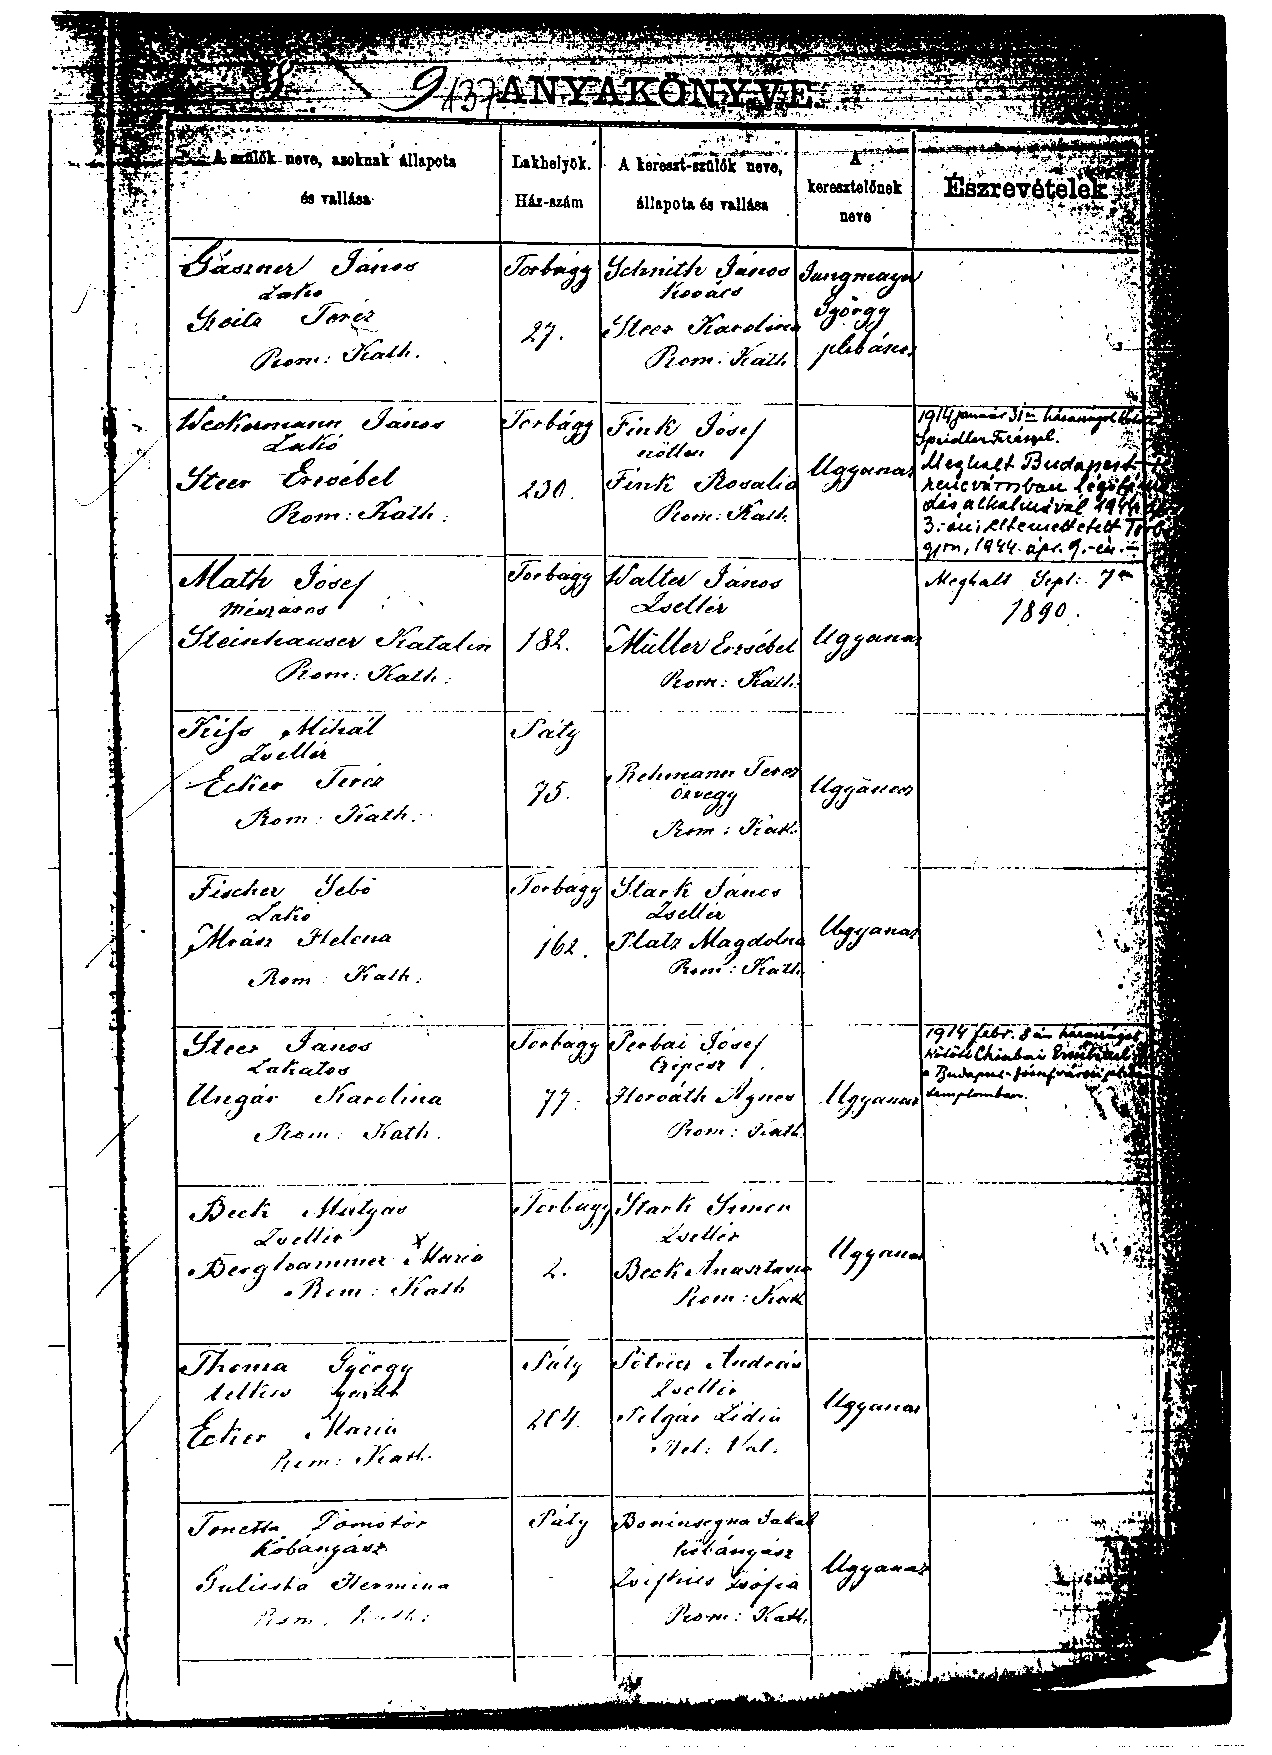 9 137 ANYAKÖNYVE.
A szülők neve, azoknak állapota
és vallása
Lakhelyök.
Ház-szám
A kereszt-szülők neve,
állapota és vallása
A
keresztelőnek
neve
Észrevételek
Gászner János
Lakó
Teréz
Rom: Kath.
Torbágy
27.
Schmith János
Kovács
Steer Karolina
Rom: Kath.
Jungmayer
György
plébános
Weckermann János
Lakó
Steer Erzsébet
Rom: Kath.
Torbágy
230.
Fink Jósef
nőtlen
Fink Rosalia
Rom: Kath.
Ugyanaz
1914 január 31-én
Meghalt Budapest
1944
3.-án; eltemettetett
1944. ápr. 9.-én.
Math Jósef
Mészáros
Steinhauser Katalin
Rom: Kath.
Torbágy
182.
Walter János
Zsellér
Müller Erzsébet
Rom: Kath.
Ugyanaz
Meghalt Sept: 7én
1890.
Kiss Mihál
Zsellér
Ecker Teréz
Rom: Kath.
Páty
75.
Rehmann Teréz
özvegy
Rom: Kath.
Ugyanaz
Fischer Sebő
Lakó
Mrász Helena
Rom: Kath.
Torbágy
162.
Stark János
Zsellér
Platz Magdolna
Rom: Kath.
Ugyanaz
Steer János
Lakatos
Ungár Karolina
Rom: Kath.
Torbágy
77.
Perbai Jósef
Gépész
Horváth Ágnes
Rom: Kath.
Ugyanaz
1914 febr. 8 án házasságot
kötött
templomban.
Beck Mátyás
Zsellér
Berghammer Mária
Rom: Kath
Torbágy
2.
Stark Simon
Zsellér
Beck Anasztasia
Rom: Kath
Ugyanaz
Thoma György
Ecker Mária
Rom: Kath.
Páty
204.
András
Zsellér
Lidia
Hel: Val.
Ugyanaz
Tonetta Dömötör
Kőbányász
Hermina
Rom. Kath:
Páty
Boninsegna Jakab
kőbányász
Zsófia
Rom: Kath.
Ugyanaz